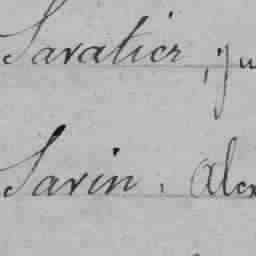 Savatier,
Savin. Alex